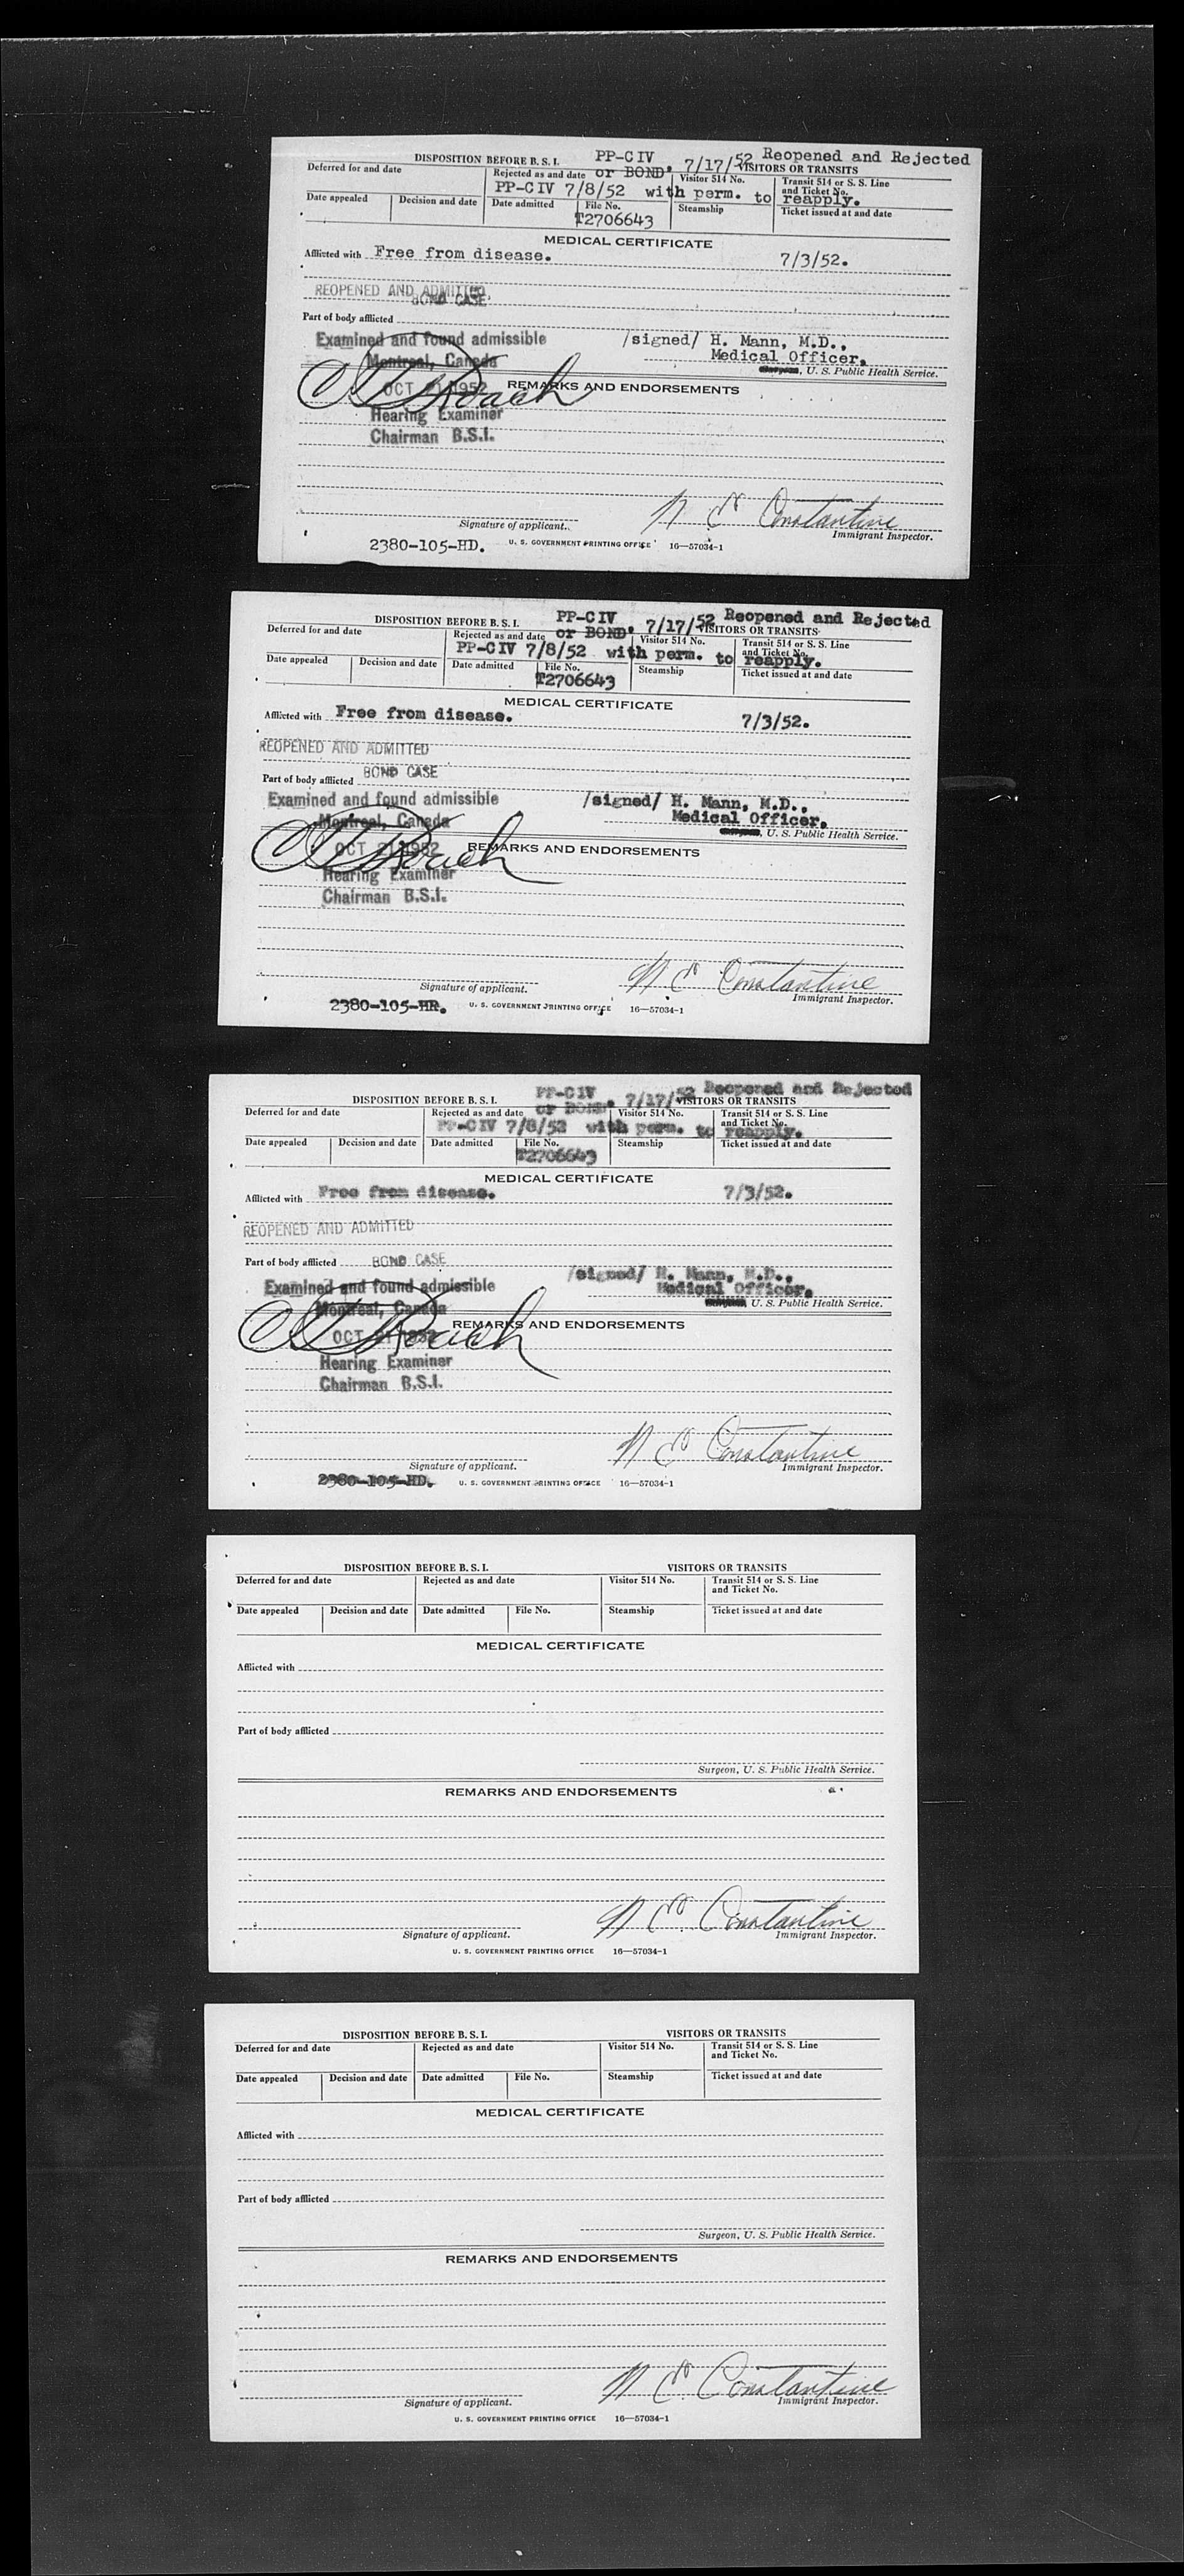 PP-CIV 7/17/52 Reopened and Rejected
DISPOSITION BEFORE B. S. I. or BOND. VISITORS OR TRANSITS
Deferred for and date Rejected as and date Visitor 514 No. Transit 514 or S. S. Line and Ticket No.
PP-CIV 7/8/52 with perm. to reapply.
Date appealed Decision and date Date admitted File No. Steamship Ticket issued at and date
T2706643
MEDICAL CERTIFICATE
Afflicted with Free from disease. 7/3/52.
REOPENED AND ADMITTED
BOND CASE
Part of body afflicted
Examined and found admissible /signed/ H. Mann, M.D.,
Montreal, Canada Medical Officer.
, U. S. Public Health Service.
OCT 21 1952 REMARKS AND ENDORSEMENTS
Roach
Hearing Examiner
Chairman B.S.I.
N C Constantine
Signature of applicant. Immigrant Inspector.
2380-105-HD. U. S. GOVERNMENT PRINTING OFFICE 16—57034-1
PP-CIV 7/17/52 Reopened and Rejected
DISPOSITION BEFORE B. S. I. or BOND. VISITORS OR TRANSITS
Deferred for and date Rejected as and date Visitor 514 No. Transit 514 or S. S. Line and Ticket No.
PP-CIV 7/8/52 with perm. to reapply.
Date appealed Decision and date Date admitted File No. Steamship Ticket issued at and date
T2706643
MEDICAL CERTIFICATE
Afflicted with Free from disease. 7/3/52.
REOPENED AND ADMITTED
Part of body afflicted BOND CASE
Examined and found admissible /signed/ H. Mann, M.D.,
Montreal, Canada Medical Officer.
, U. S. Public Health Service.
OCT 21 1952 REMARKS AND ENDORSEMENTS
Roach
Hearing Examiner
Chairman B.S.I.
N C Constantine
Signature of applicant. Immigrant Inspector.
2380-105-HR. U. S. GOVERNMENT PRINTING OFFICE 16—57034-1
PP-CIV 7/17/52 Reopened and Rejected
DISPOSITION BEFORE B. S. I. or BOND. VISITORS OR TRANSITS
Deferred for and date Rejected as and date Visitor 514 No. Transit 514 or S. S. Line and Ticket No.
PP-CIV 7/8/52 with perm. to reapply.
Date appealed Decision and date Date admitted File No. Steamship Ticket issued at and date
T2706643
MEDICAL CERTIFICATE
Afflicted with Free from disease. 7/3/52.
REOPENED AND ADMITTED
Part of body afflicted BOND CASE
Examined and found admissible /signed/ H. Mann, M.D.,
Montreal, Canada Medical Officer.
, U. S. Public Health Service.
OCT 21 1952 REMARKS AND ENDORSEMENTS
Roach
Hearing Examiner
Chairman B.S.I.
N C Constantine
Signature of applicant. Immigrant Inspector.
2380-105-HD. U. S. GOVERNMENT PRINTING OFFICE 16—57034-1
DISPOSITION BEFORE B. S. I. VISITORS OR TRANSITS
Deferred for and date Rejected as and date Visitor 514 No. Transit 514 or S. S. Line and Ticket No.
Date appealed Decision and date Date admitted File No. Steamship Ticket issued at and date
MEDICAL CERTIFICATE
Afflicted with
Part of body afflicted
Surgeon, U. S. Public Health Service.
REMARKS AND ENDORSEMENTS
N C Constantine
Signature of applicant. Immigrant Inspector.
U. S. GOVERNMENT PRINTING OFFICE 16—57034-1
DISPOSITION BEFORE B. S. I. VISITORS OR TRANSITS
Deferred for and date Rejected as and date Visitor 514 No. Transit 514 or S. S. Line and Ticket No.
Date appealed Decision and date Date admitted File No. Steamship Ticket issued at and date
MEDICAL CERTIFICATE
Afflicted with
Part of body afflicted
Surgeon, U. S. Public Health Service.
REMARKS AND ENDORSEMENTS
N C Constantine
Signature of applicant. Immigrant Inspector.
U. S. GOVERNMENT PRINTING OFFICE 16—57034-1